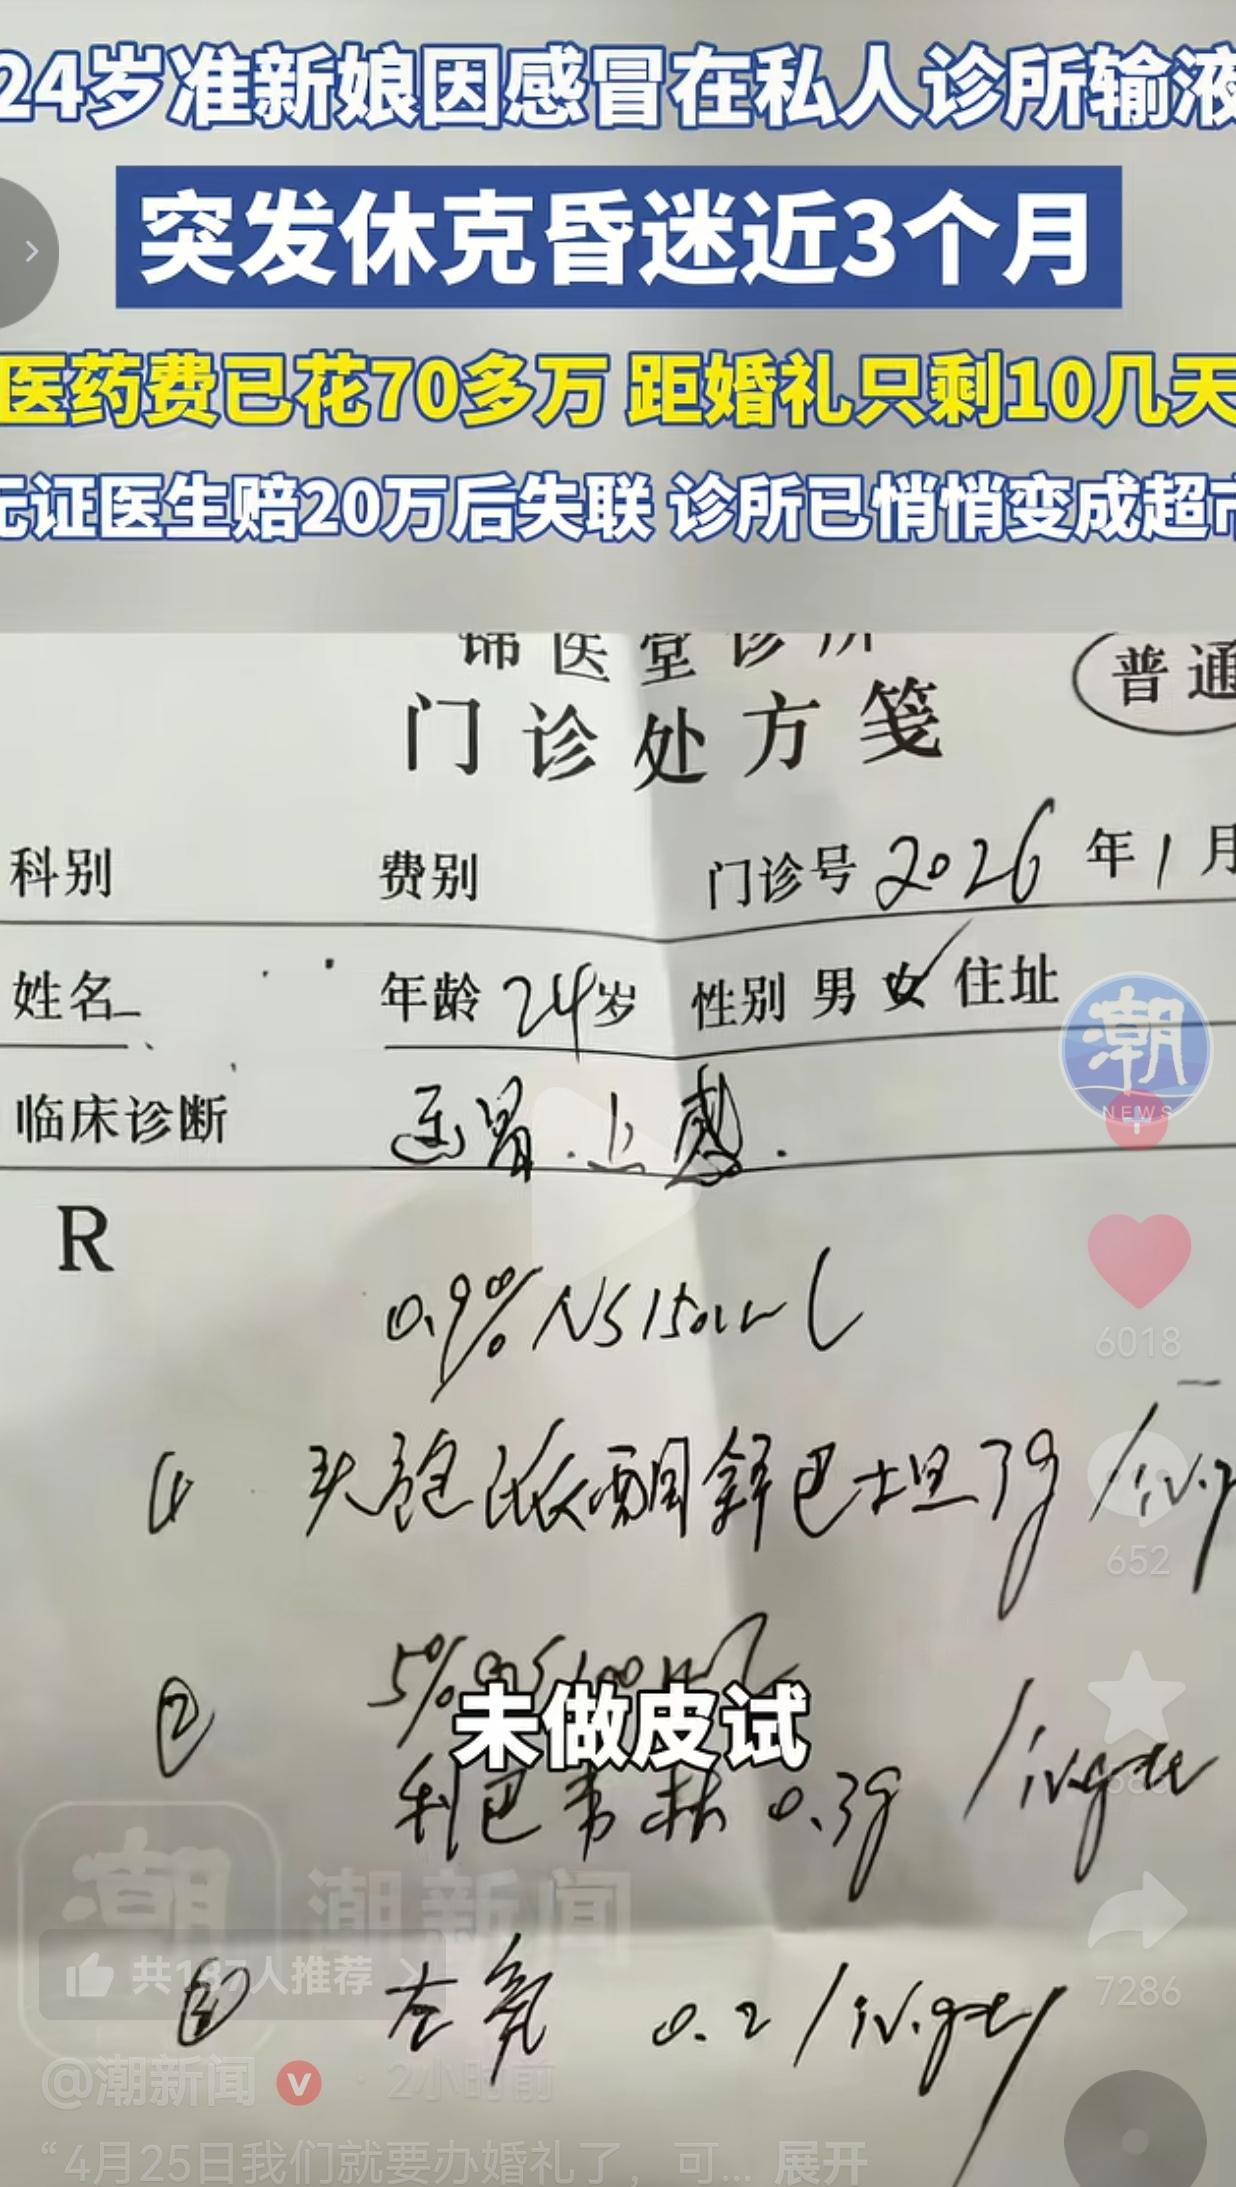 24岁准新娘因感冒在私人诊所输液
突发休克昏迷近3个月
医药费已花70多万 距婚礼只剩10几天
无证医生赔20万后失联 诊所已悄悄变成超市
锦医堂诊所
门诊处方笺
普通
科别 费别 门诊号 2026年1月
姓名 年龄 24岁 性别 男 女 住址
临床诊断 上感.
R
0.9% NS 150ml
头孢哌酮舒巴坦 3g /iv.g
② 5% GNS 100ml
未做皮试
利巴韦林 0.3g /iv.gtt
③ 左氧 0.2 /iv.gtt
潮
NEWS
6018
652
7286
潮新闻
共137人推荐
@潮新闻 · 2小时前
“4月25日我们就要办婚礼了，可... 展开